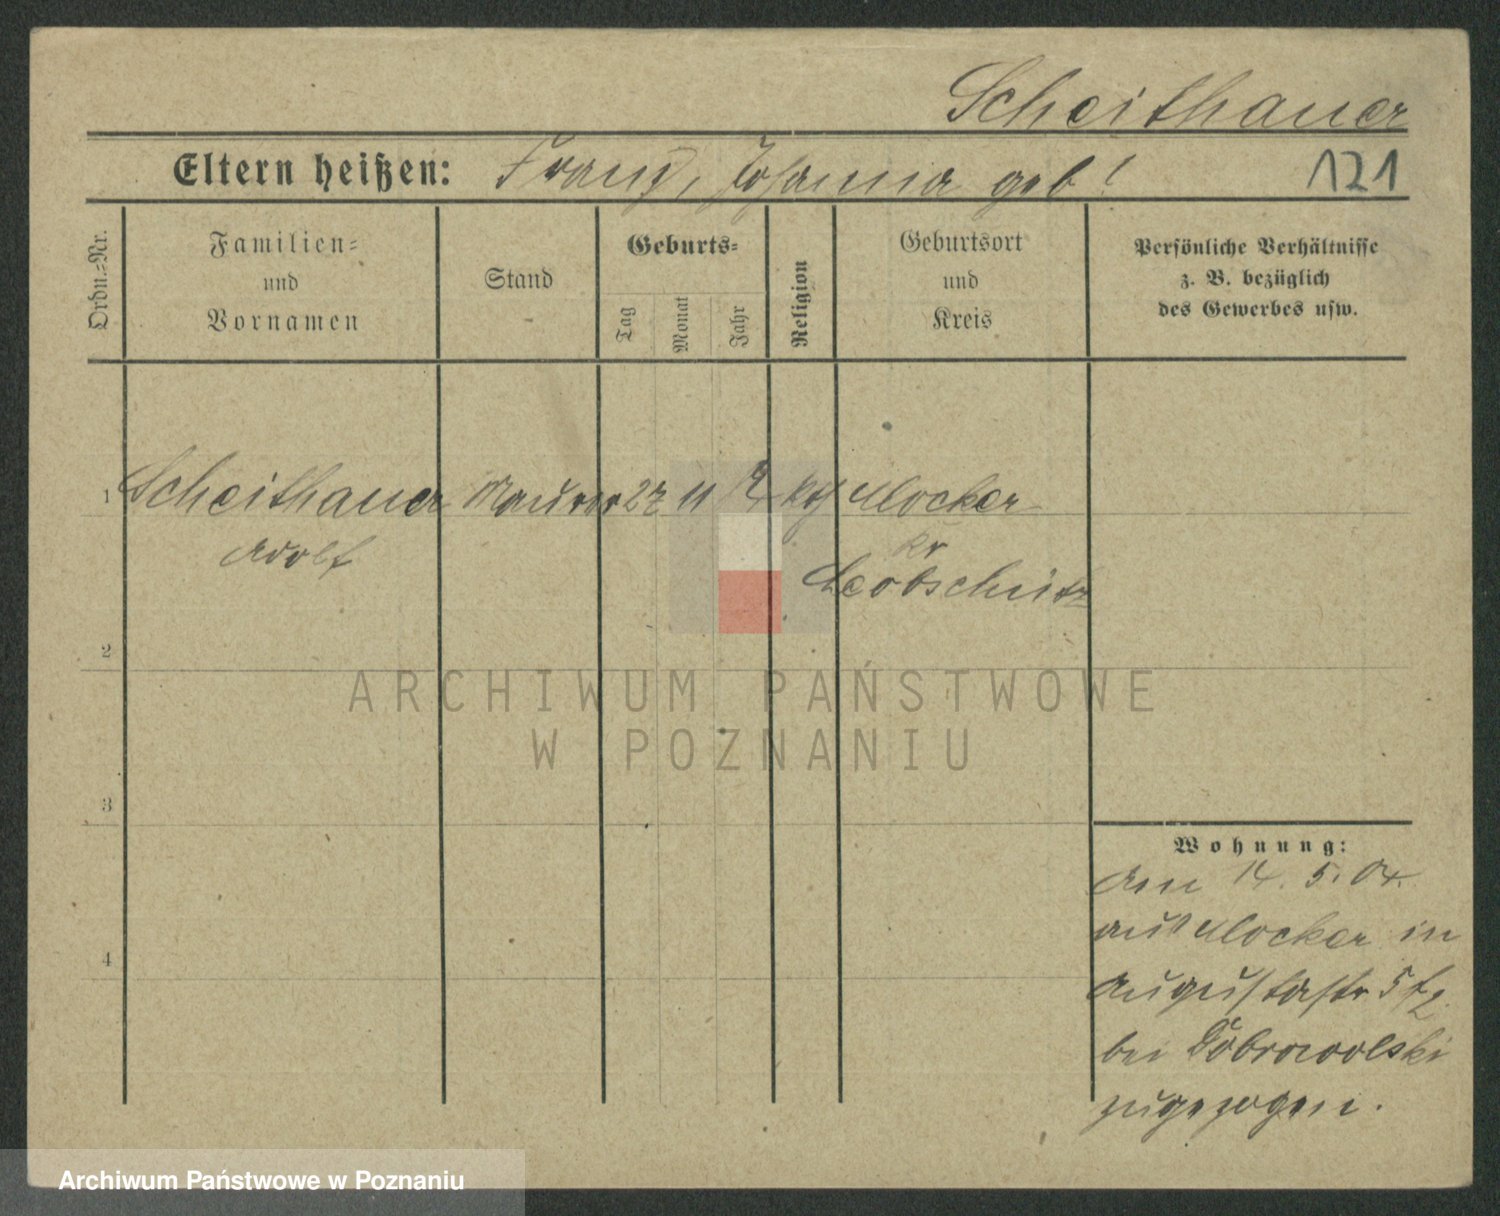 Scheithauer
Eltern heißen: Franz, Johanna geb!
121
Ordn.=Nr.
Familien=
und
Vornamen
Stand
Geburts=
Tag
Monat
Jahr
Religion
Geburtsort
und
Kreis
Persönliche Verhältnisse
z. B. bezüglich
des Gewerbes usw.
1 Scheithauer Maurer 27 11 kth Mocker
Adolf
kr
Leobschütz
2
3
4
ARCHIWUM PAŃSTWOWE
W POZNANIU
Wohnung:
Am 14. 5. 04.
aus Mocker in
Augustastr 5
bei Dobrowolski
zugezogen.
Archiwum Państwowe w Poznaniu